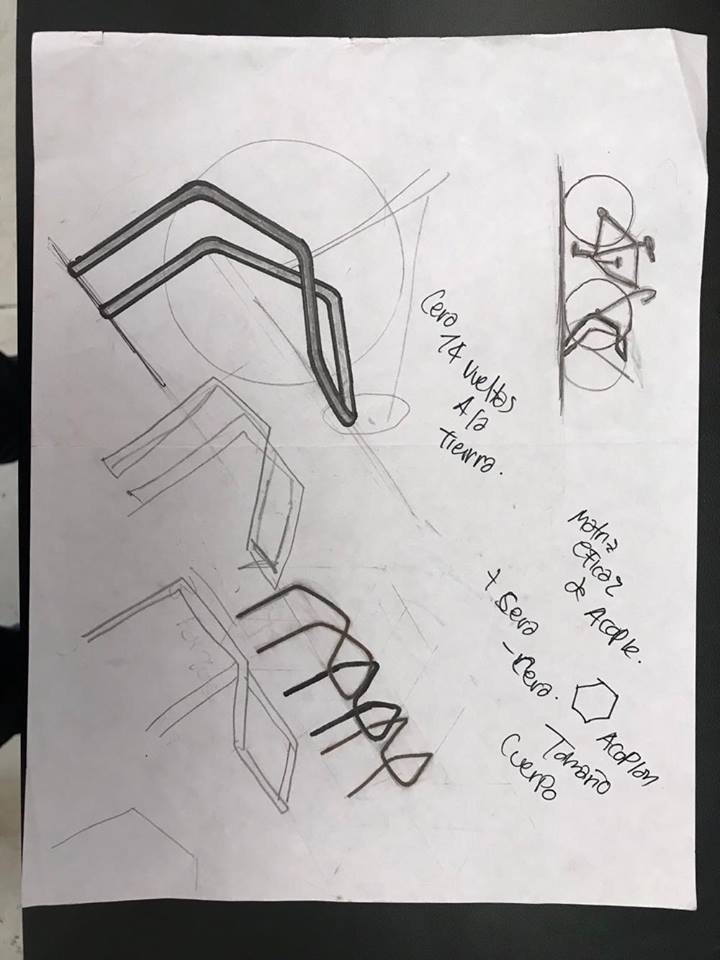 Cera
14 vueltas
A la
tierra.
Matriz
eficaz
de Acople.
+ Sera
- Cera.
Acoplan
Tamaño
Cuerpo